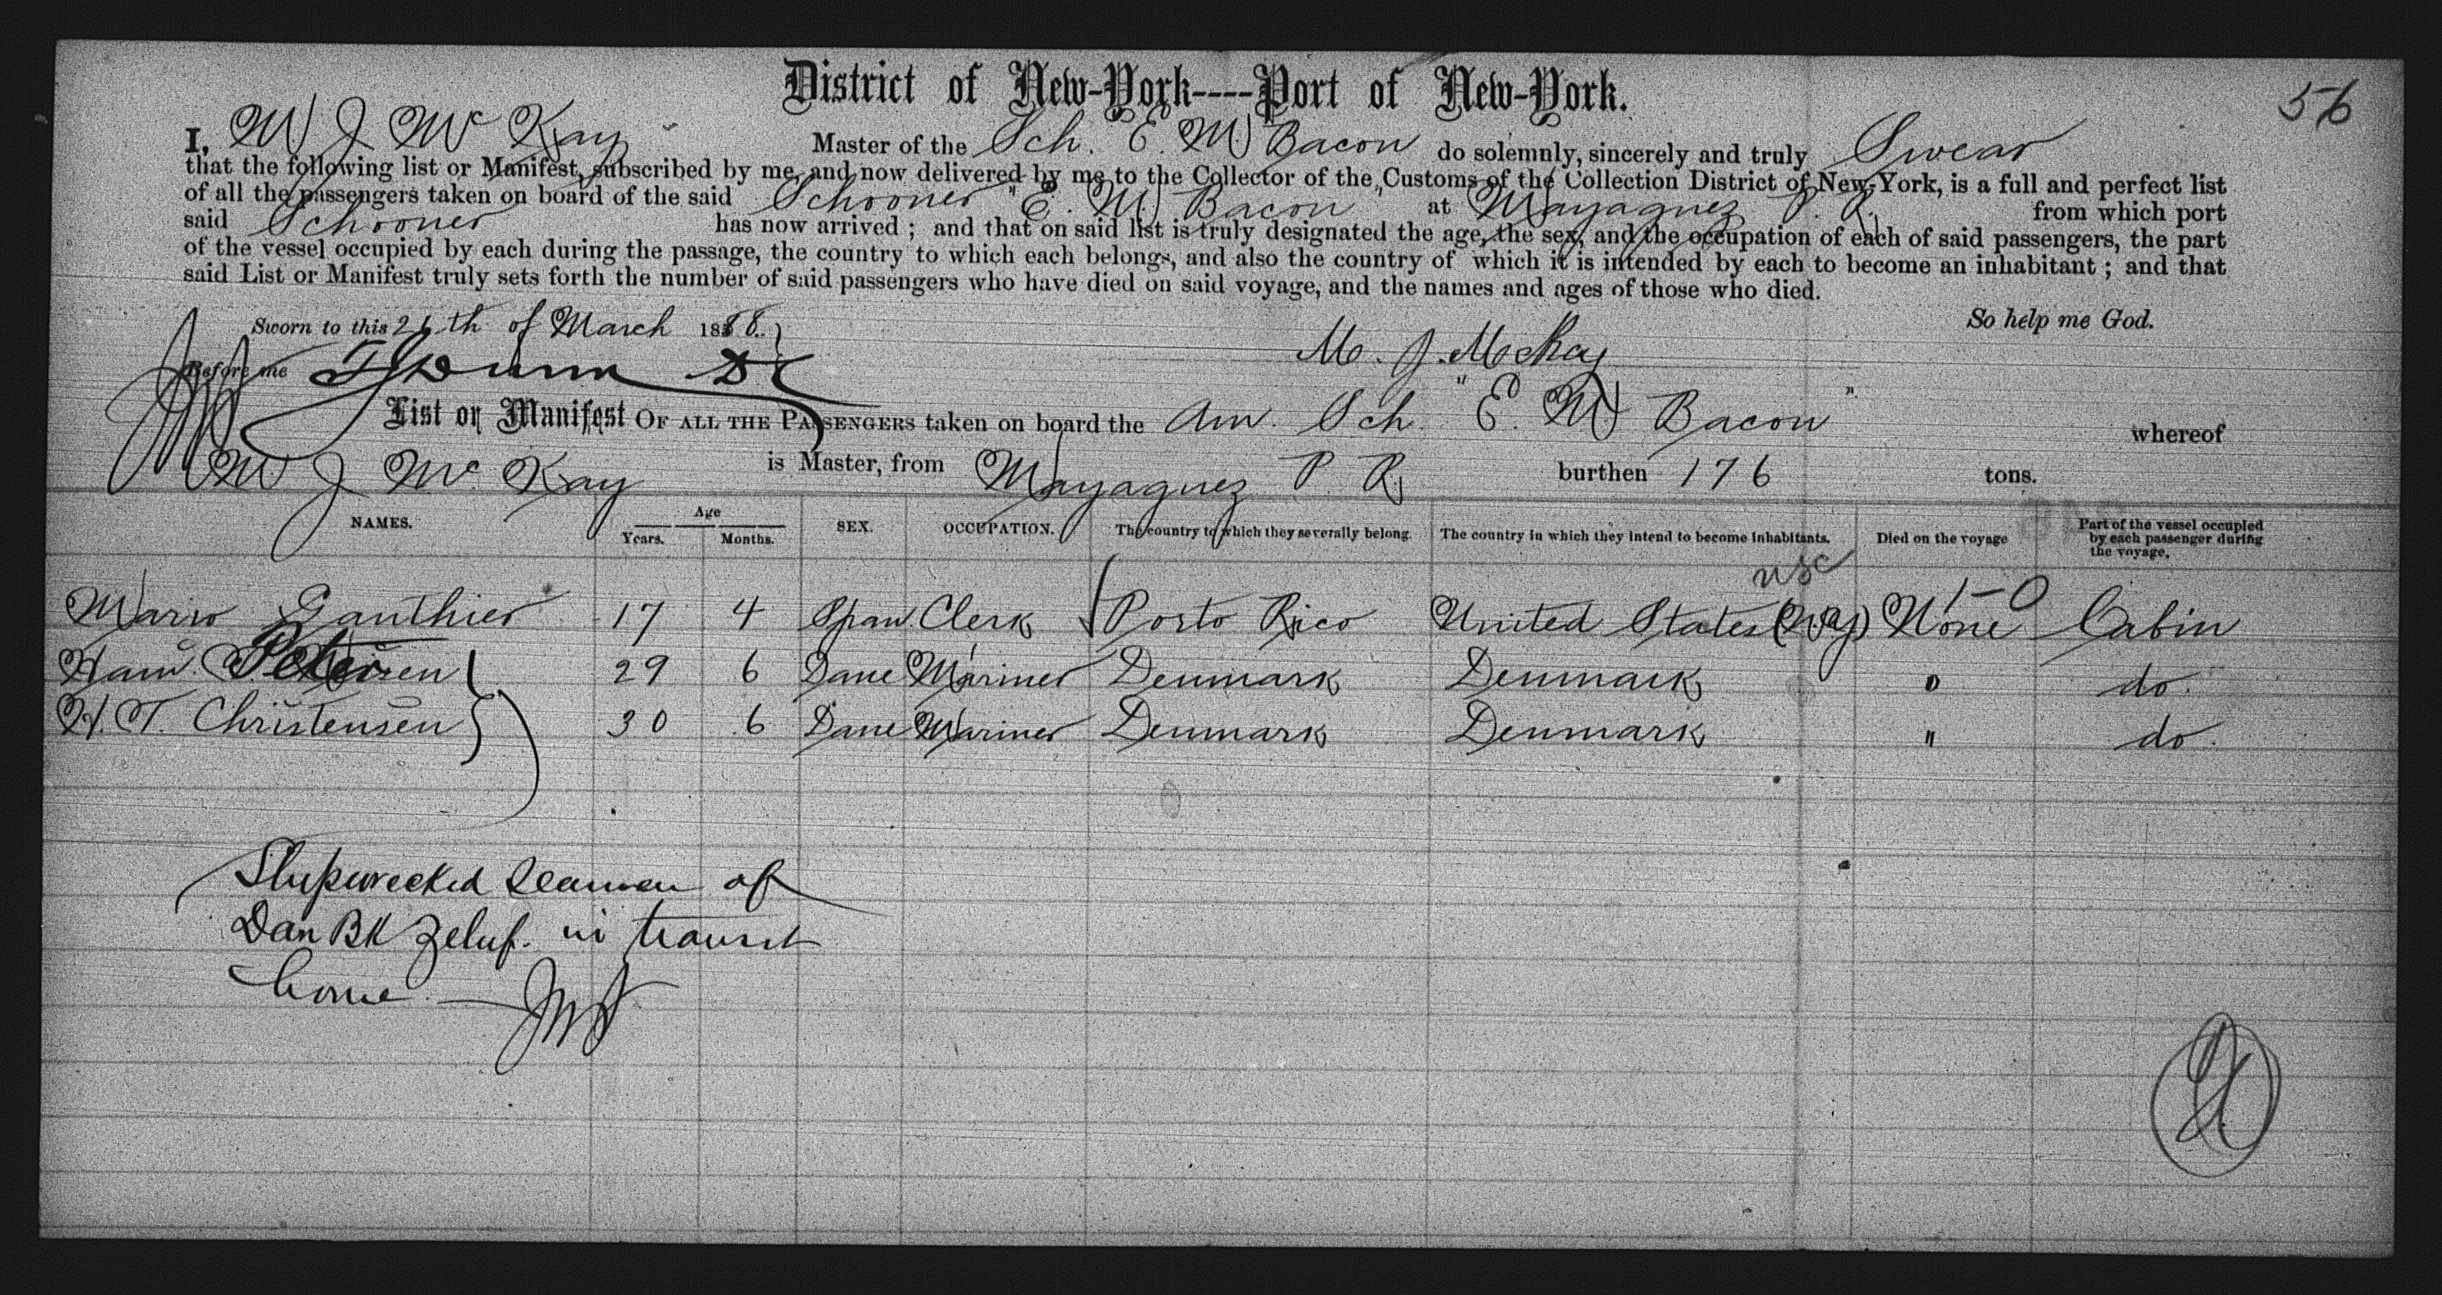 District of New-York----Port of New-York.
56
I, W J Mc Kay Master of the Sch. E. W Bacon do solemnly, sincerely and truly Swear
that the following list or Manifest, subscribed by me, and now delivered by me to the Collector of the Customs of the Collection District of New-York, is a full and perfect list
of all the passengers taken on board of the said Schooner "E. W Bacon" at Mayaguez P. R. from which port
said Schooner has now arrived ; and that on said list is truly designated the age, the sex, and the occupation of each of said passengers, the part
of the vessel occupied by each during the passage, the country to which each belongs, and also the country of which it is intended by each to become an inhabitant ; and that
said List or Manifest truly sets forth the number of said passengers who have died on said voyage, and the names and ages of those who died.
So help me God.
Sworn to this 26th of March 1888.
Before me
List or Manifest OF ALL THE PASSENGERS taken on board the Am. Sch. "E. W Bacon" whereof
W J Mc Kay is Master, from Mayaguez P. R burthen 176 tons.
NAMES. Age Years. Months. SEX. OCCUPATION. The country to which they severally belong. The country in which they intend to become inhabitants. Died on the voyage Part of the vessel occupied by each passenger during the voyage.
usc
1-0
Mario Gauthier 17 4 Span. Clerk Porto Rico United States None Cabin
29 6 Dane Mariner Denmark Denmark " do.
H. T. Christensen 30 6 Dane Mariner Denmark Denmark " do.
Shipwrecked Seamen of
Dan Bk in transit
home.